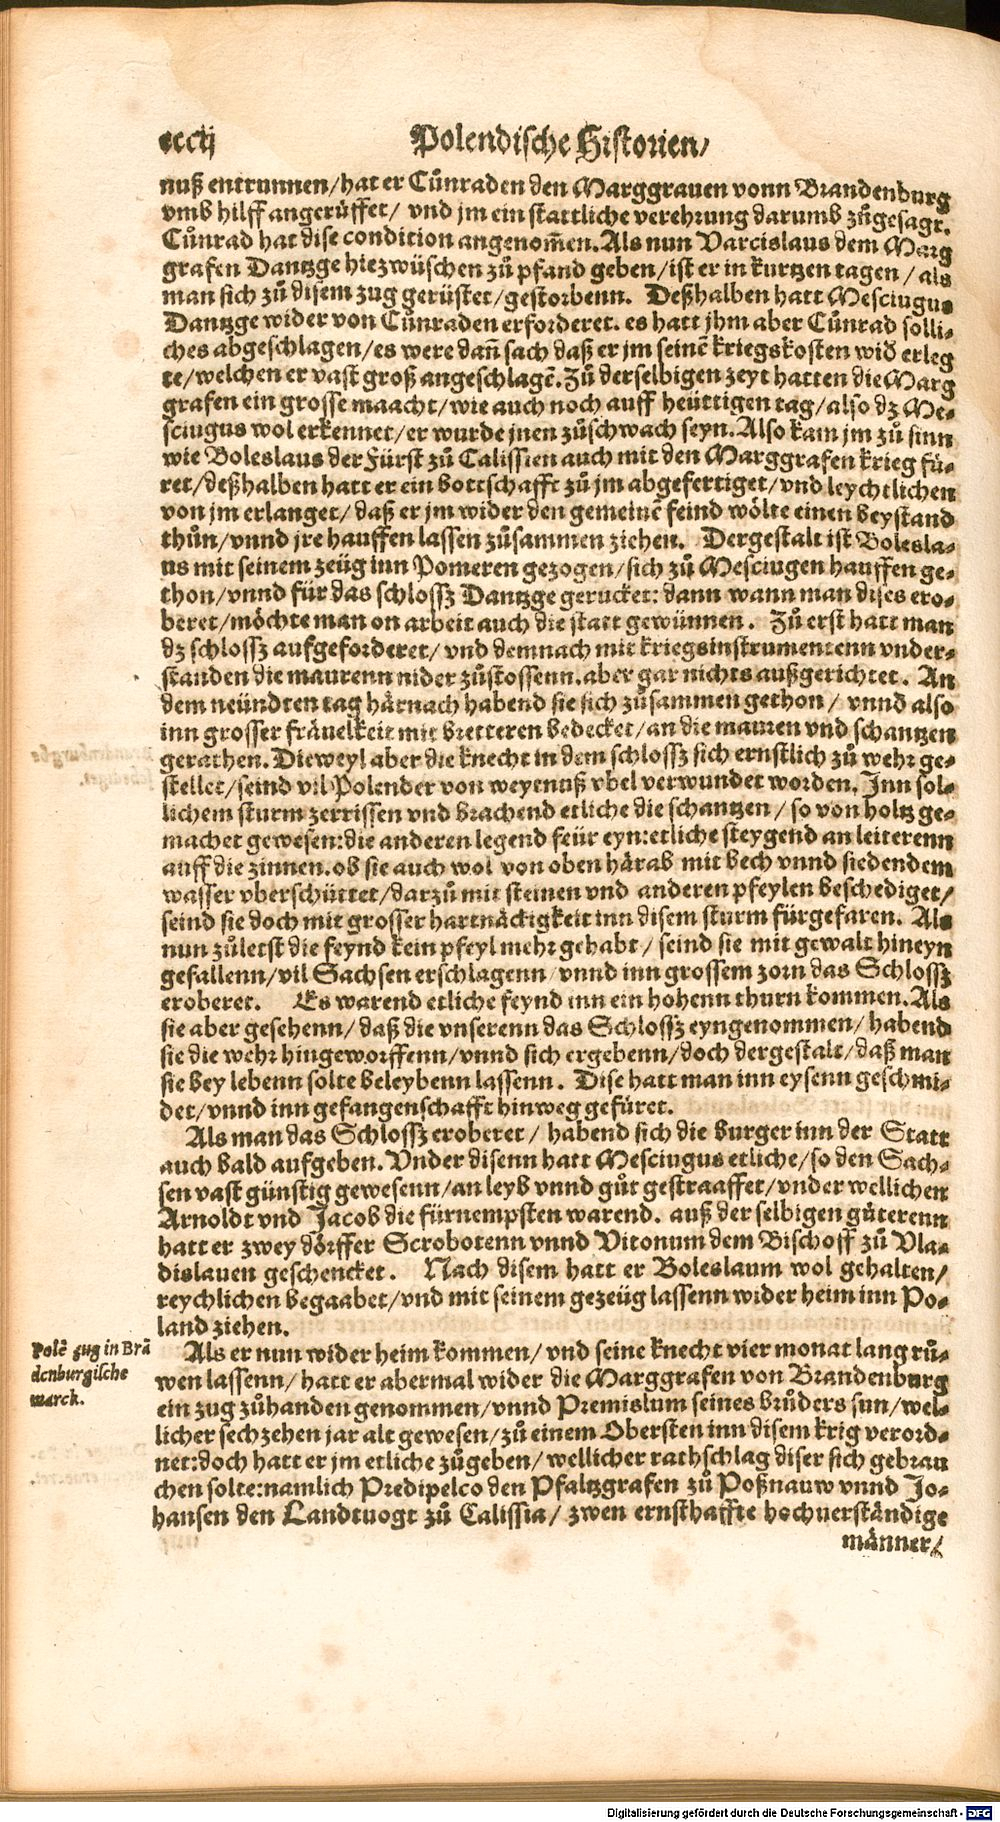 cccij Polendische Historien/
nuß entrunnen/hat er Cůnraden den Marggrauen vonn Brandenburg
vmb hilff angerüffet/ vnd jm ein stattliche verehrung darumb zůgesagt.
Cůnrad hat dise condition angenom̃en. Als nun Varcislaus dem Marg
grafen Dantzge hiezwüschen zů pfand geben/ist er in kurtzen tagen/ als
man sich zů disem zug gerüstet/gestorbenn. Deßhalben hatt Mesciugus
Dantzge wider von Cůnraden erforderet. es hatt jhm aber Cůnrad solli-
ches abgeschlagen/es were dañ sach daß er jm seinẽ kriegskosten wid̾ erleg
te/welchen er vast groß angeschlagẽ. Zů derselbigen zeyt hatten die Marg
grafen ein grosse maacht/wie auch noch auff heüttigen tag/also dz Me-
sciugus wol erkennet/er wurde jnen zůschwach seyn. Also kam jm zů sinn
wie Boleslaus der Fürst zů Calissien auch mit den Marggrafen krieg fü-
ret/deßhalben hatt er ein bottschafft zů jm abgefertiget/vnd leychtlichen
von jm erlanget/daß er jm wider den gemeinẽ feind wölte einen beystand
thůn/vnnd jre hauffen lassen zůsammen ziehen. Dergestalt ist Bolesla-
us mit seinem zeüg inn Pomeren gezogen/sich zů Mesciugen hauffen ge-
thon/vnnd für das schlossz Dantzge gerucket: dann wann man dises ero-
beret/möchte man on arbeit auch die statt gewünnen. Zů erst hatt man
dz schlossz aufgeforderet/ vnd demnach mit kriegsinstrumentenn vnder-
standen die maurenn nider zůstossenn. aber gar nichts außgerichtet. An
dem neündten tag härnach habend sie sich zůsammen gethon/ vnnd also
inn grosser fräuelkeit mit bretteren bedecket/an die mauren vnd schantzen
gerathen. Dieweyl aber die knecht in dem schlossz sich ernstlich zů wehr ge-
stellet/seind vil Polender von weytnuß vbel verwundet worden. Inn sol-
lichem sturm zerrissen vnd brachend etliche die schantzen/ so von holtz ge-
machet gewesen: die anderen legend feür eyn: etliche steygend an leiterenn
auff die zinnen. ob sie auch wol von oben härab mit bech vnnd siedendem
wasser vberschüttet/darzů mit steinen vnd anderen pfeylen beschediget/
seind sie doch mit grosser hartnäckigkeit inn disem sturm fürgefaren. Als
nun zůletst die feynd kein pfeyl mehr gehabt/ seind sie mit gewalt hineyn
gefallenn/vil Sachsen erschlagenn/vnnd inn grossem zorn das Schlossz
eroberet. Es warend etliche feynd inn ein hohenn thurn kommen. Als
sie aber gesehenn/daß die vnserenn das Schlossz eyngenommen/habend
sie die wehr hingeworffenn/vnnd sich ergebenn/doch dergestalt/daß man
sie bey lebenn solte beleybenn lassenn. Dise hatt man inn eysenn geschmi-
det/vnnd inn gefangenschafft hinweg gefüret.
Als man das Schlossz eroberet/ habend sich die burger inn der Statt
auch bald aufgeben. Vnder disenn hatt Mesciugus etliche/so den Sach-
sen vast günstig gewesenn/an leyb vnnd gůt gestraaffet/vnder wellichen
Arnoldt vnd Jacob die fürnempsten warend. auß der selbigen güterenn
hatt er zwey dörffer Scrobotenn vnnd Vitonum dem Bischoff zů Vla-
dislauen geschencket. Nach disem hatt er Boleslaum wol gehalten/
reychlichen begaabet/vnd mit seinem gezeüg lassenn wider heim inn Po-
land ziehen.
Polẽ zug in Brã
denburgische
marck.
Als er nun wider heim kommen/ vnd seine knecht vier monat lang rů-
wen lassenn/ hatt er abermal wider die Marggrafen von Brandenburg
ein zug zůhanden genommen/vnnd Premislum seines brůders sun/wel-
licher sechzehen jar alt gewesen/zů einem Obersten inn disem krig verord-
net: doch hatt er jm etliche zůgeben/wellicher rathschlag diser sich gebrau
chen solte: namlich Predipelco den Pfaltzgrafen zů Poßnauw vnnd Jo-
hansen den Landtuogt zů Calissia/ zwen ernsthaffte hochuerständige
männer/
Digitalisierung gefördert durch die Deutsche Forschungsgemeinschaft - DFG